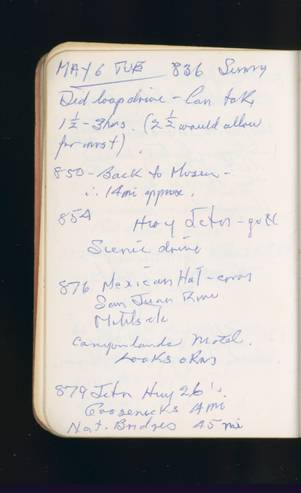 MAY 6 TUE 836 Sunny
Did loop drive - Can take
1½ - 3 hrs. (2½ would allow
for most)
850 - Back to Museum -
∴ 14 mi approx.
854 Hwy Jctn -
Scenic drive
876 Mexican Hat - cross
San Juan River
Motels etc
Canyonlands Motel.
Looks okay
879 Jctn Hwy 261.
Goosenecks 4 mi
Nat. Bridges 45 mi